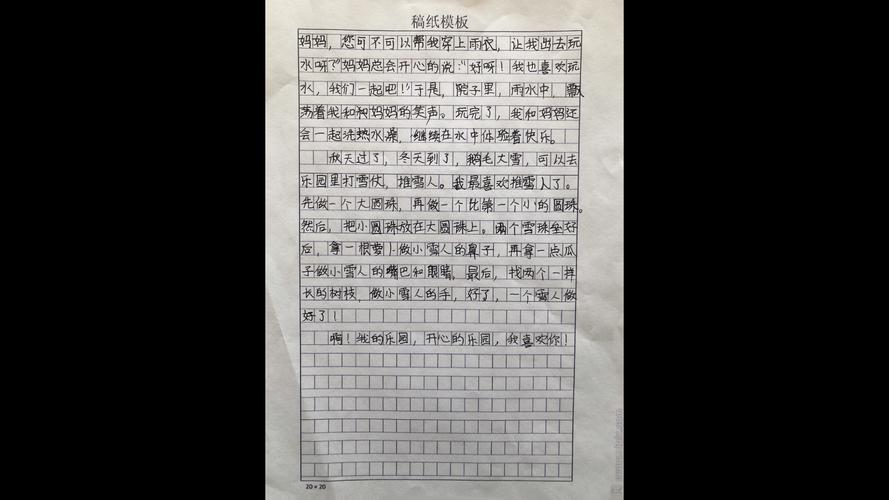 稿纸模板
妈妈，您可不可以帮我穿上雨衣，让我出去玩
水呀？”妈妈总会开心的说：“好呀！我也喜欢玩
水，我们一起吧！”于是，院子里，雨水中，飘
荡着我和妈妈的笑声。玩完了，我和妈妈还
会一起洗热水澡，继续在水中体验着快乐。
秋天过了，冬天到了，鹅毛大雪，可以去
乐园里打雪仗，推雪人。我最喜欢推雪人了。
先做一个大圆珠，再做一个比第一个小的圆珠。
然后，把小圆珠放在大圆珠上。两个雪珠坐好
后，拿一根萝卜做小雪人的鼻子，再拿一点瓜
子做小雪人的嘴巴和眼睛，最后，找两个一样
长的树枝，做小雪人的手，好了，一个雪人做
好了！
啊！我的乐园，开心的乐园，我喜欢你！
20×20